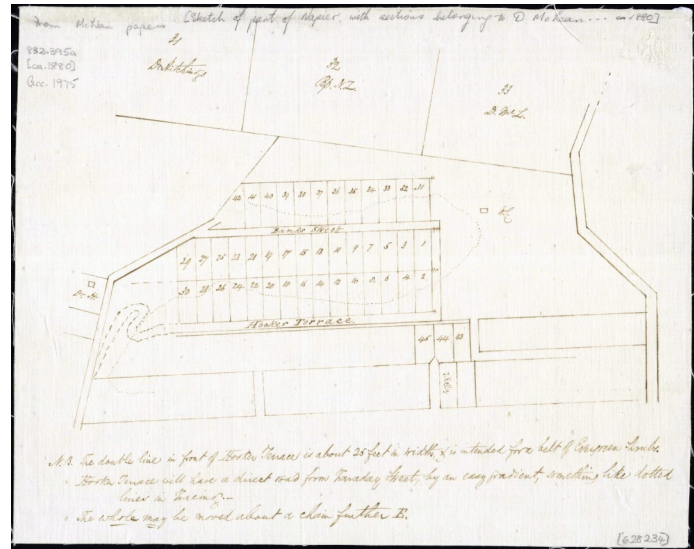 from McLean papers [Sketch of part of Napier, with sections belonging to D. McLean ... ca 1880]
832.395a
[ca.1880]
Acc. 1975
31
Dr Hitchings
32
Bp. N.Z.
33
D. McL.
42 41 40 39 38 37 36 35 34 33 32 31
Banks Street
29 27 25 23 21 19 17 15 13 11 9 7 5 3 1
Dr. H.
30 28 26 24 22 20 18 16 14 12 10 8 6 4 2
Hooker Terrace
45 44 43
N.B. The double line in front of Hooker Terrace is about 25 feet in width, & is intended for a belt of Evergreen Shrubs.
" Hooker Terrace will have a direct road from Faraday Street, by an easy gradient, something like dotted
lines in Tracing.
" The whole may be moved about a chain further E.
[628234]